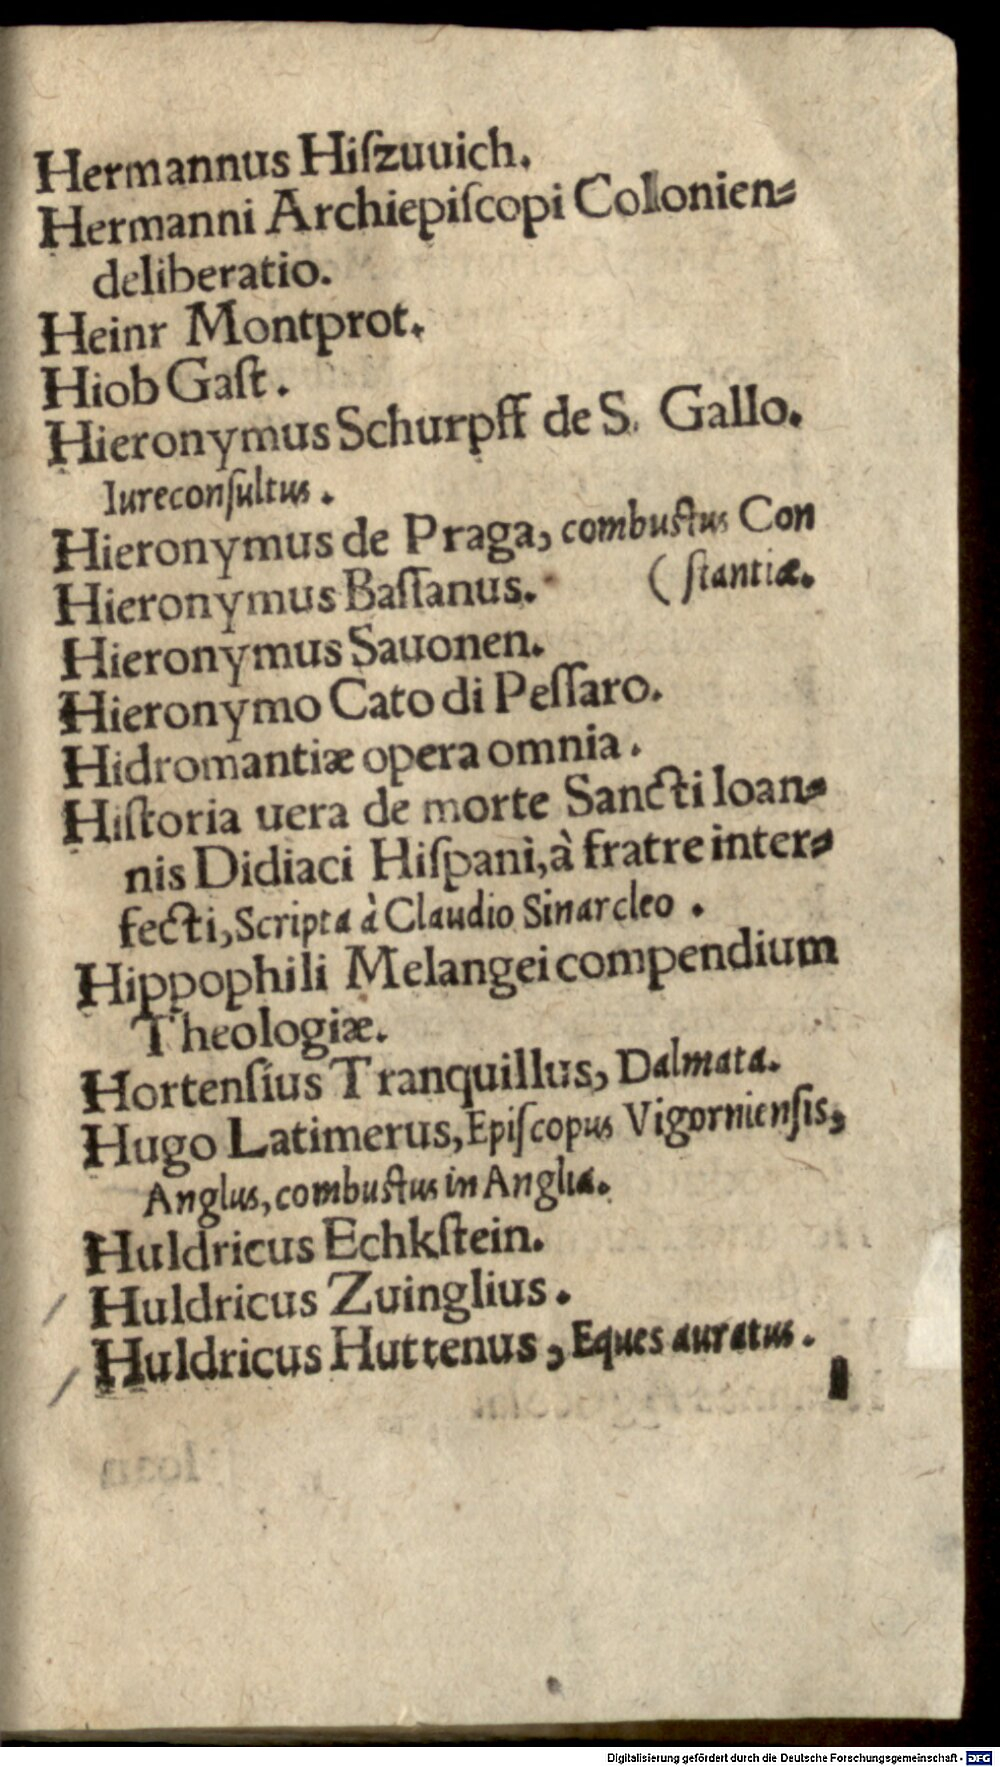 Hermannus Hiſzuuich.
Hermanni Archiepiſcopi Colonien⸗
deliberatio.
Heinr Montprot.
Hiob Gaſt.
Hieronymus Schurpff de S. Gallo.
Iureconſultus.
Hieronymus de Praga, combuſtus Con
Hieronymus Baſſanus. (ſtantiæ.
Hieronymus Sauonen.
Hieronymo Cato di Peſſaro.
Hidromantiæ opera omnia.
Hiſtoria uera de morte Sancti Ioan⸗
nis Didiaci Hiſpani, à fratre inter⸗
fecti, Scripta à Claudio Sinarcleo.
Hippophili Melangei compendium
Theologiæ.
Hortenſius Tranquillus, Dalmata.
Hugo Latimerus, Epiſcopus Vigornienſis,
Anglus, combuſtus in Anglia.
Huldricus Echkſtein.
Huldricus Zuinglius.
Huldricus Huttenus, Eques auratus.
Digitalisierung gefördert durch die Deutsche Forschungsgemeinschaft - DFG